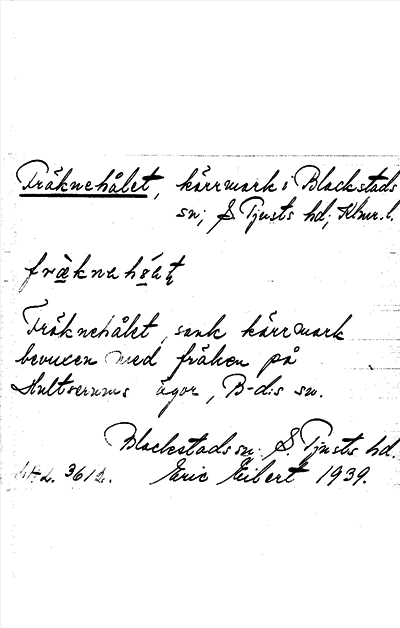 Fräknehålet, kärrmark i Blackstads
sn; S. Tjusts hd; Klmr. l.
fræ̀knehålet
Fräknehålet, sank kärrmark
bevuxen med fräken på
Hultserums ägor, B-d:s sn.
Blackstads sn. S. Tjusts hd.
3612. Eric Eibert 1939.